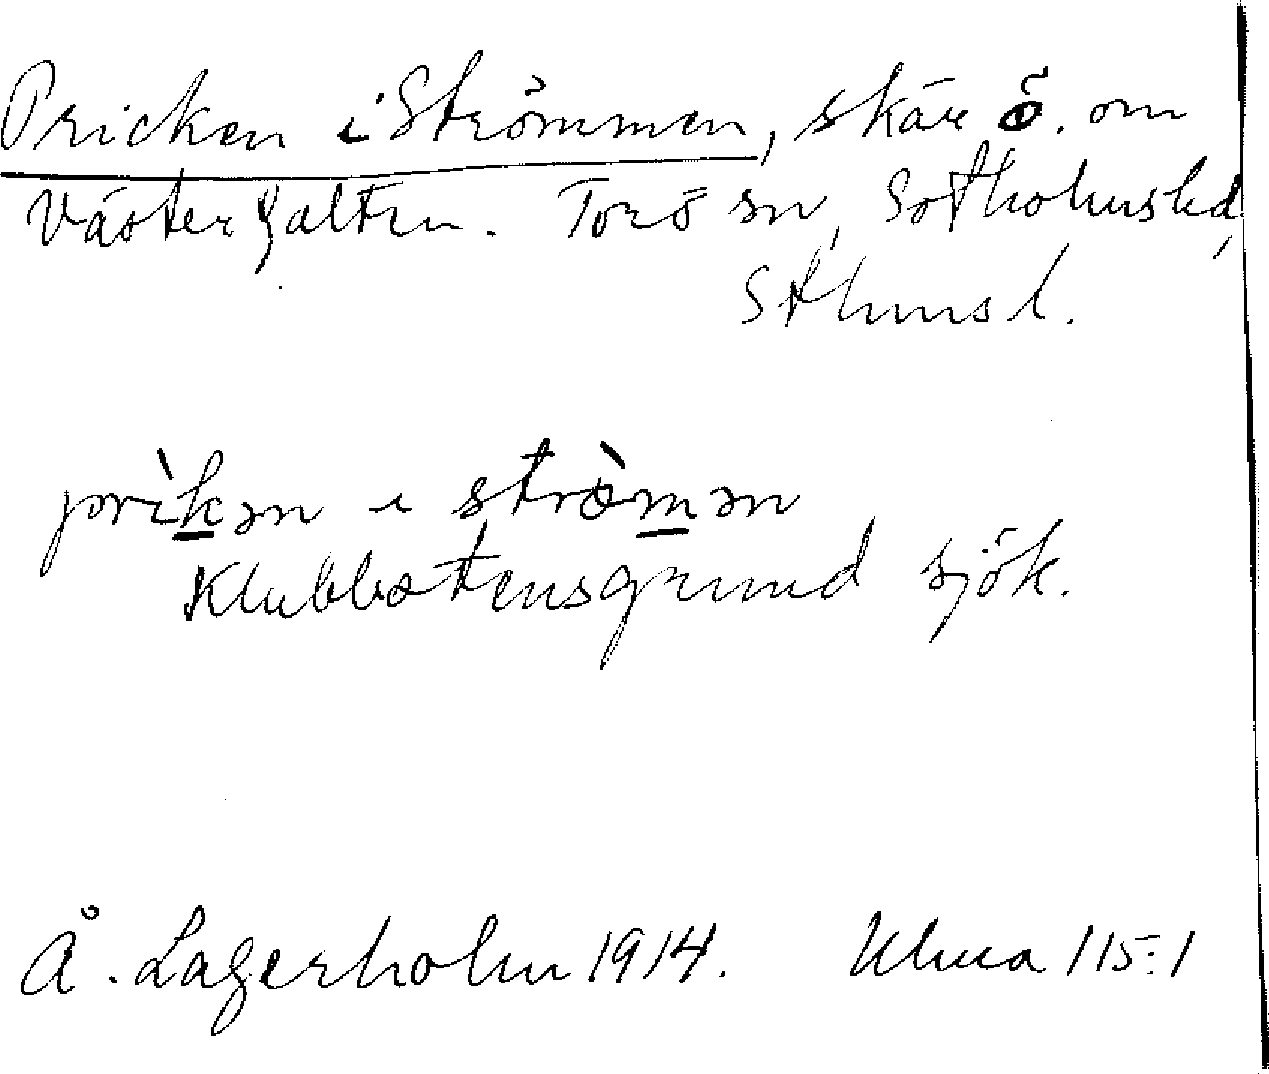 Pricken i Strömmen, skär ö. om
Västergalten. Torö sn, Sotholmshd,
Sthmsl.
prìkən i strömən
Klubbstensgrund sjök.
Å. Lagerholm 1914. Ulma 115:1